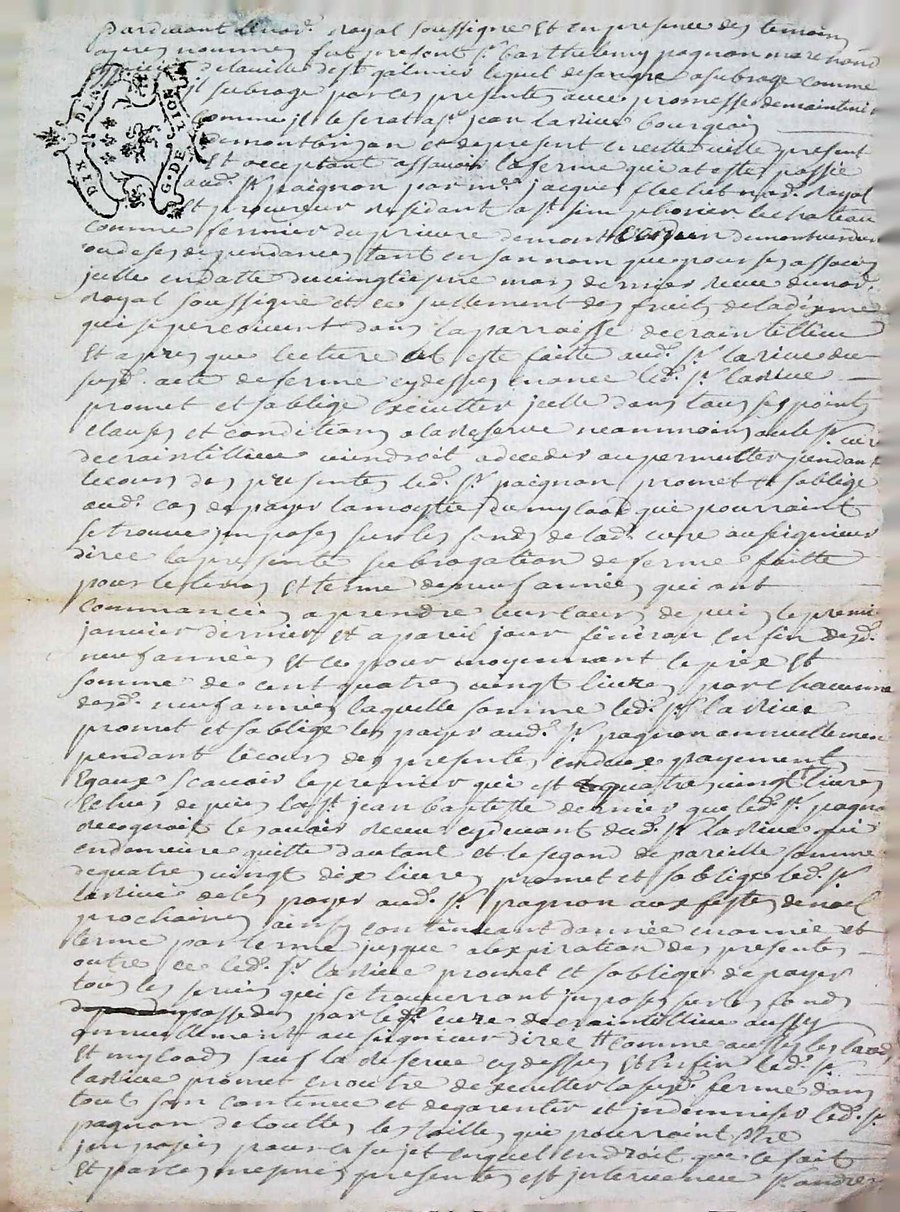 Pardevant le no.re Royal soussigné Et en presence des temoins
apres nommes fut present s.r Barthelemy pagnon marchand
de la ville de st galmier lequel de son gre a subrogé comme
il subroge par ces presentes avec promesse de maintenir
comme il le sera a s.r jean larive bourgeois
de montbrison et de present en cette ville present
Et acceptant assavoir la ferme qui a estee passée
aud. s.r pagnon par me. jacques flechet no.re Royal
Et procureur residant a st simphorien le chateau
comme fermier du prieuré de montverdun
ou de ses dependances tant en son nom que pour ses associés
jcelle en datte du vingtiesme mars dernier receue du no.re
Royal soussigné et ce seullement des fruits de la dixme
qui se percoivent dans la parroisse de craintillieu
Et apres que lecture a este faitte aud. s.r larive du
susd. acte de ferme cydessus enoncé led. s.r larive
promet et soblige executter jcelle dans tous ses points
clauses et conditions a la reserve neanmoins ou le s.r curé
de craintillieu viendroit a deceder ou permutter pendant
le cours des presentes led. s.r pagnon promet et soblige
aud. cas de payer la moytie du mylood que pourraint
se trouver jmposés sur les fonds de lad. cure au seigneur
direc la presente subrogation de ferme faitte
pour le tems et terme de neuf années qui ont
commancées a prendre leur cours depuis le premier
janvier dernier et a pareil jour finiron en fin desd.
neuf années Et ce pour moyennant le prix Et
somme de cent quatre vingt livres par chacunne
desd. neuf années laquelle somme led. s.r larive
promet et soblige les payer aud. s.r pagnon annuellement
pendant le cours des presentes en deux payements
Egaux scavoir le premier qui est quatre vingt livres
Echus depuis la st jean baptiste dernier que led. s.r pagnon
recognoit les avoir receu cydevant dud. s.r larive qui
en demeure quitte dautant et le segond de pareille somme
de quatre vingt dix livres promet et soblige led. s.r
larive de les payer aud. s.r pagnon aux festes de noel
prochaines ainsy continuant dannée en année et
terme par terme jusque a expiration des presentes
outre ce led. s.r larive promet et soblige de payer
tous les servis qui se trouverront jmposes sur les fonds
possedes par led. s.r curé de craintillieu aussy
annuellement au seigneur direct comme aussy les laods
Et mylaods sauf la reserve cydessus Et enfin led. s.r
larive promet en outre de executter la susd. ferme dans
tout son contenue et de garentir et jndemniser led. s.r
pagnon de touttes les tailles que pourraint etre
jmposées pour le sujet en quel endroit que ce soit
Et par les mesmes presentes est jntervenue s.r andré
DIX DEN
G. DE